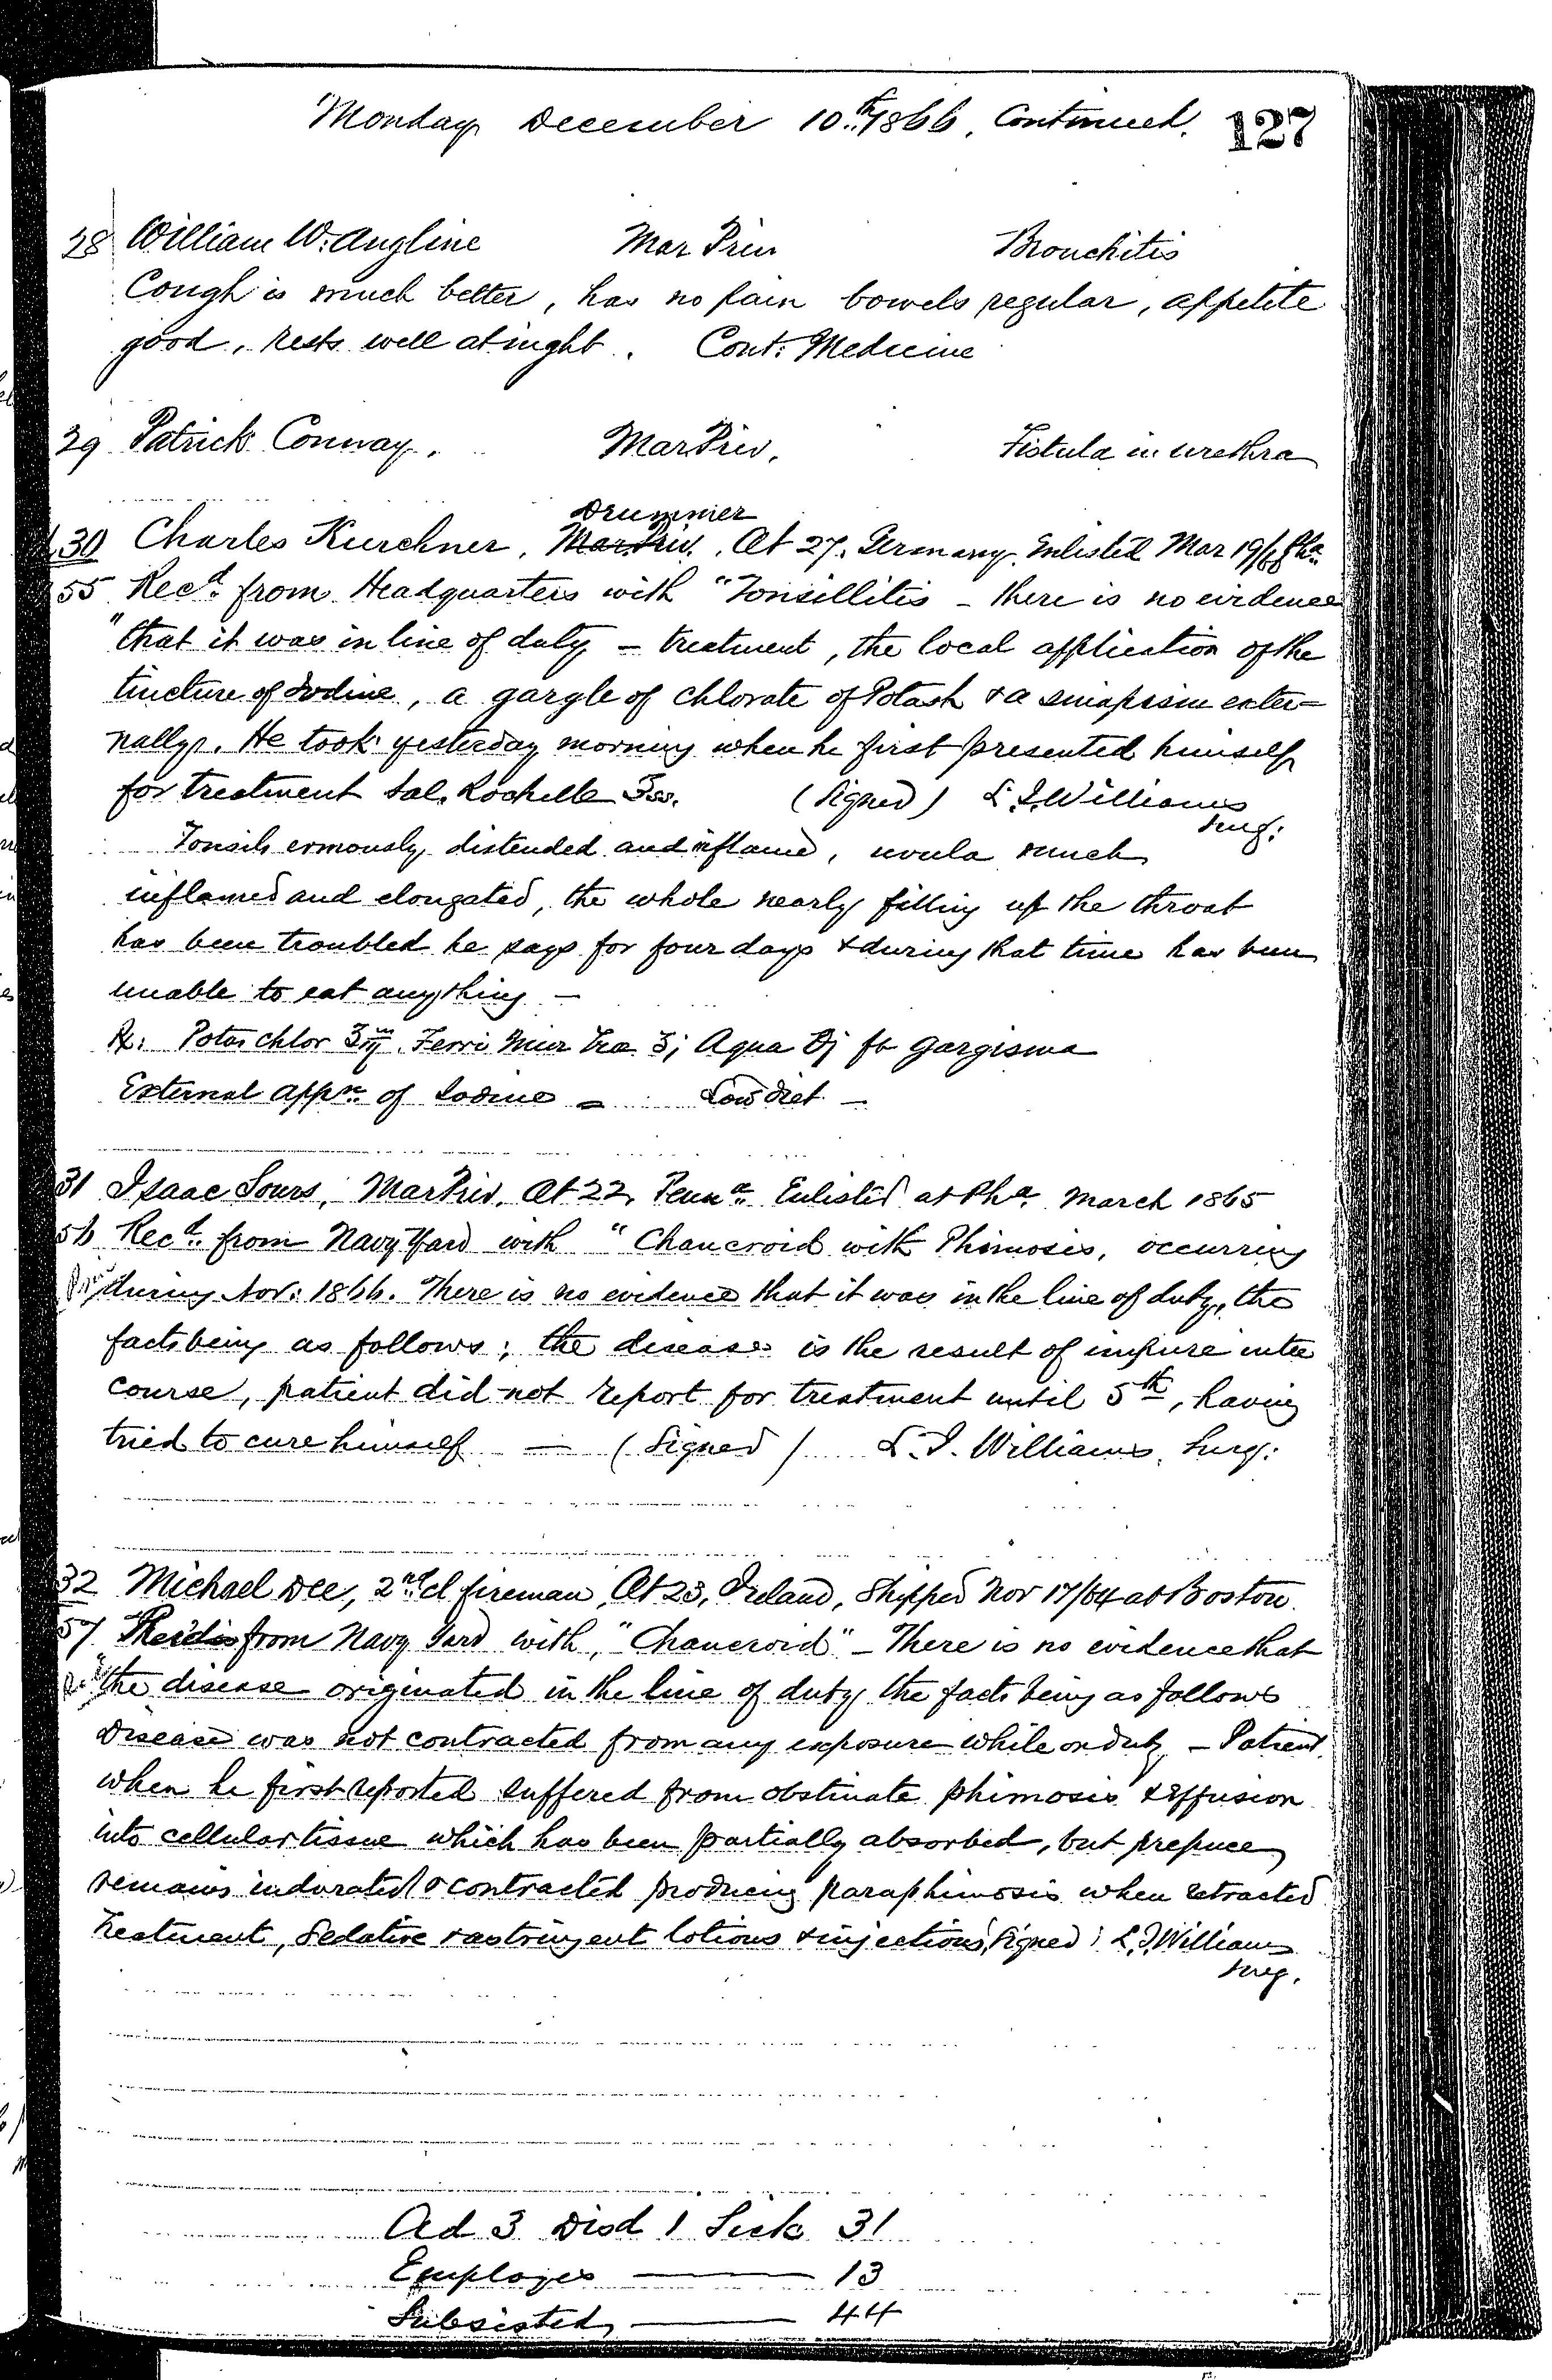 Monday December 10th 1866, Continued. 127
28 William W. Angline Mar Priv Bronchitis
Cough is much better, has no pain bowels regular, appetite
good, rests well at night. Cont: Medicine
29 Patrick Conway. Mar Priv. Fistula in urethra
Drummer
30 Charles Kurchner. Mar Priv. Æt 27. Germany. Enlisted Mar 19/66 Pha
55 Recd. from Headquarters with "Tonsillitis – there is no evidence
"that it was in line of duty – treatment, the local application of the
tincture of Iodine, a gargle of chlorate of Potash & a sinapism exter=
nally. He took yesterday morning when he first presented himself
for treatment Sal. Rochelle ℥ss. (Signed) L. J. Williams
Surg:
Tonsils ermously distended and inflamed, uvula much
inflamed and elongated, the whole nearly filling up the throat
has been troubled he says for four days & during that time has been
unable to eat anything –
Rx: Potas chlor ʒiij Ferri Mur Tra ʒj Aqua Oj ft gargisma
External appn. of Iodine – Low diet –
31 Isaac Sours, Mar Priv. Æt 22, Penna. Enlisted at Pha. March 1865
56 Recd. from Navy Yard with "Chancroid with Phimosis, occurring
during Nov: 1866. There is no evidence that it was in the line of duty, the
facts being as follows; the disease is the result of impure inter
course, patient did not report for treatment until 5th, having
tried to cure himself – (Signed) L. J. Williams, Surg:
32 Michael Dee, 2nd cl fireman, Æt 23, Ireland, Shipped Nov 17/64 at Boston
57 from Navy Yard with, "Chancroid" – There is no evidence that
"the disease originated in the line of duty the facts being as follows
Disease was not contracted from any exposure while on duty – Patient
when he first reported suffered from obstinate phimosis & effusion
into cellular tissue which has been partially absorbed, but prepuce
remains indurated & contracted producing paraphimosis when retracted
Treatment, Sedative & astringent lotions & injections, Signed; L. J. Williams
Surg.
Ad 3 Disd 1 Sick 31
Employes — 13
Subsisted, — 44